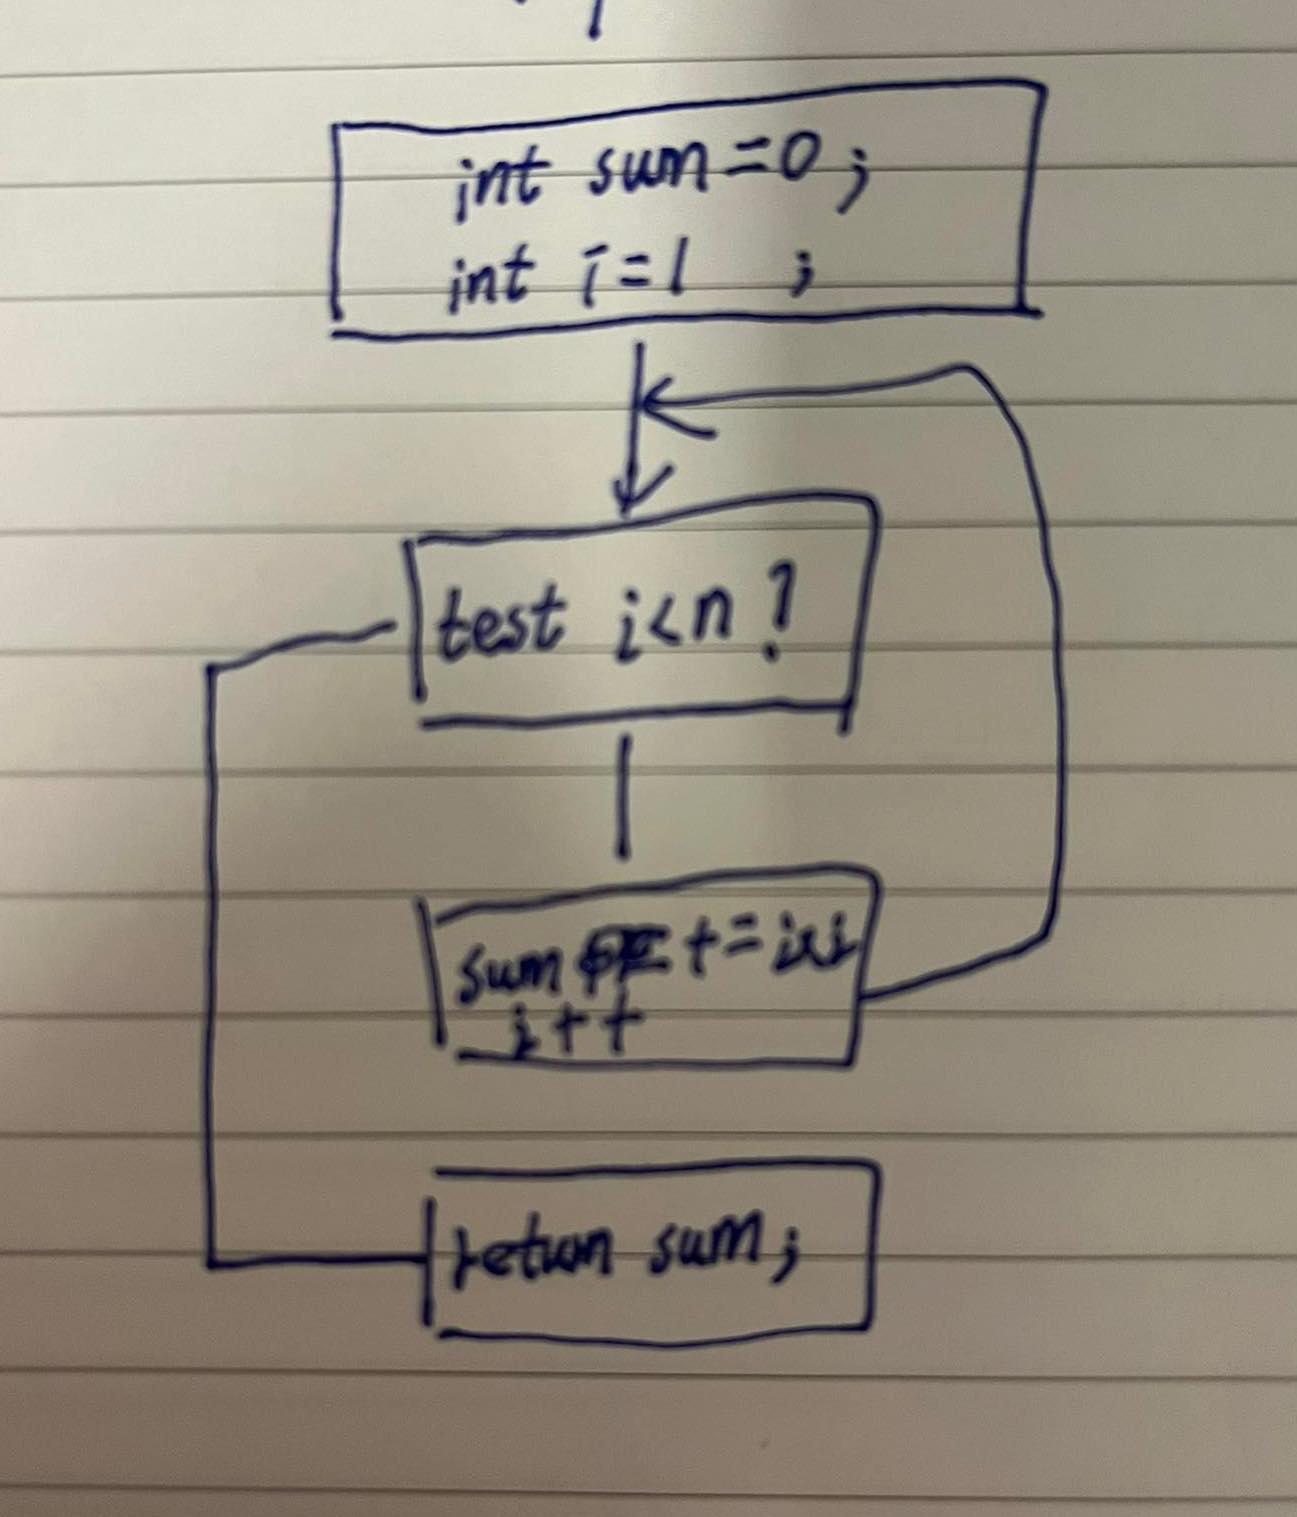 int sum=0;
int i=1 ;
test i<n?
sum += i*i
i++
return sum;